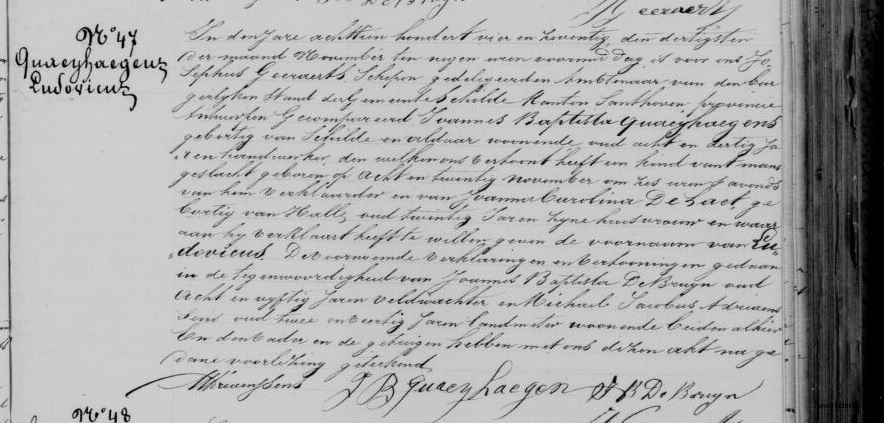 Geeraerts
N° 47
Quaeyhaegens
Ludovicus
In den Jare achttien hondert vier en twentig den dertigsten
der maand November ten negen uren voormiddag is voor ons Jo-
sephus Geeraerts Schepen gedeligeerden Ambtenaar van den Bur
gerlyken Stand der Gemeente Schilde Kanton Santhoven provincie
Antwerpen Gecompareerd Joannes Baptista Quaeyhaegens
gebortig van Schilde en aldaar woonende oud acht en dertig Ja-
ren handwerker, den welken ons vertoont heeft een kind van't man
geslacht geboren op acht en twintig november om zes uren s'avonds
van hem verklaarder en van Joanna Carolina De Laet, ge
bortig van Halle, oud twintig Jaren zyne huisvrouw en waar
aan hy verklaart heeft te willen geven de voornaam van Lu-
dovicus. De voorwende verklaringen en vertooningen gedaan
in de tegenwoordigheid van Joannes Baptista De Bruyn oud
Acht en vyftig Jaren veldwachter en Michael Jacobus Adriaens
sens oud twee en veertig Jaren landmeter woonende beiden alhier
En den vader en de getuigen hebben met ons dezen act na ge
dane voorlezing geteekend
J B Quaeyhaegen J B De Bruyn
N° 48